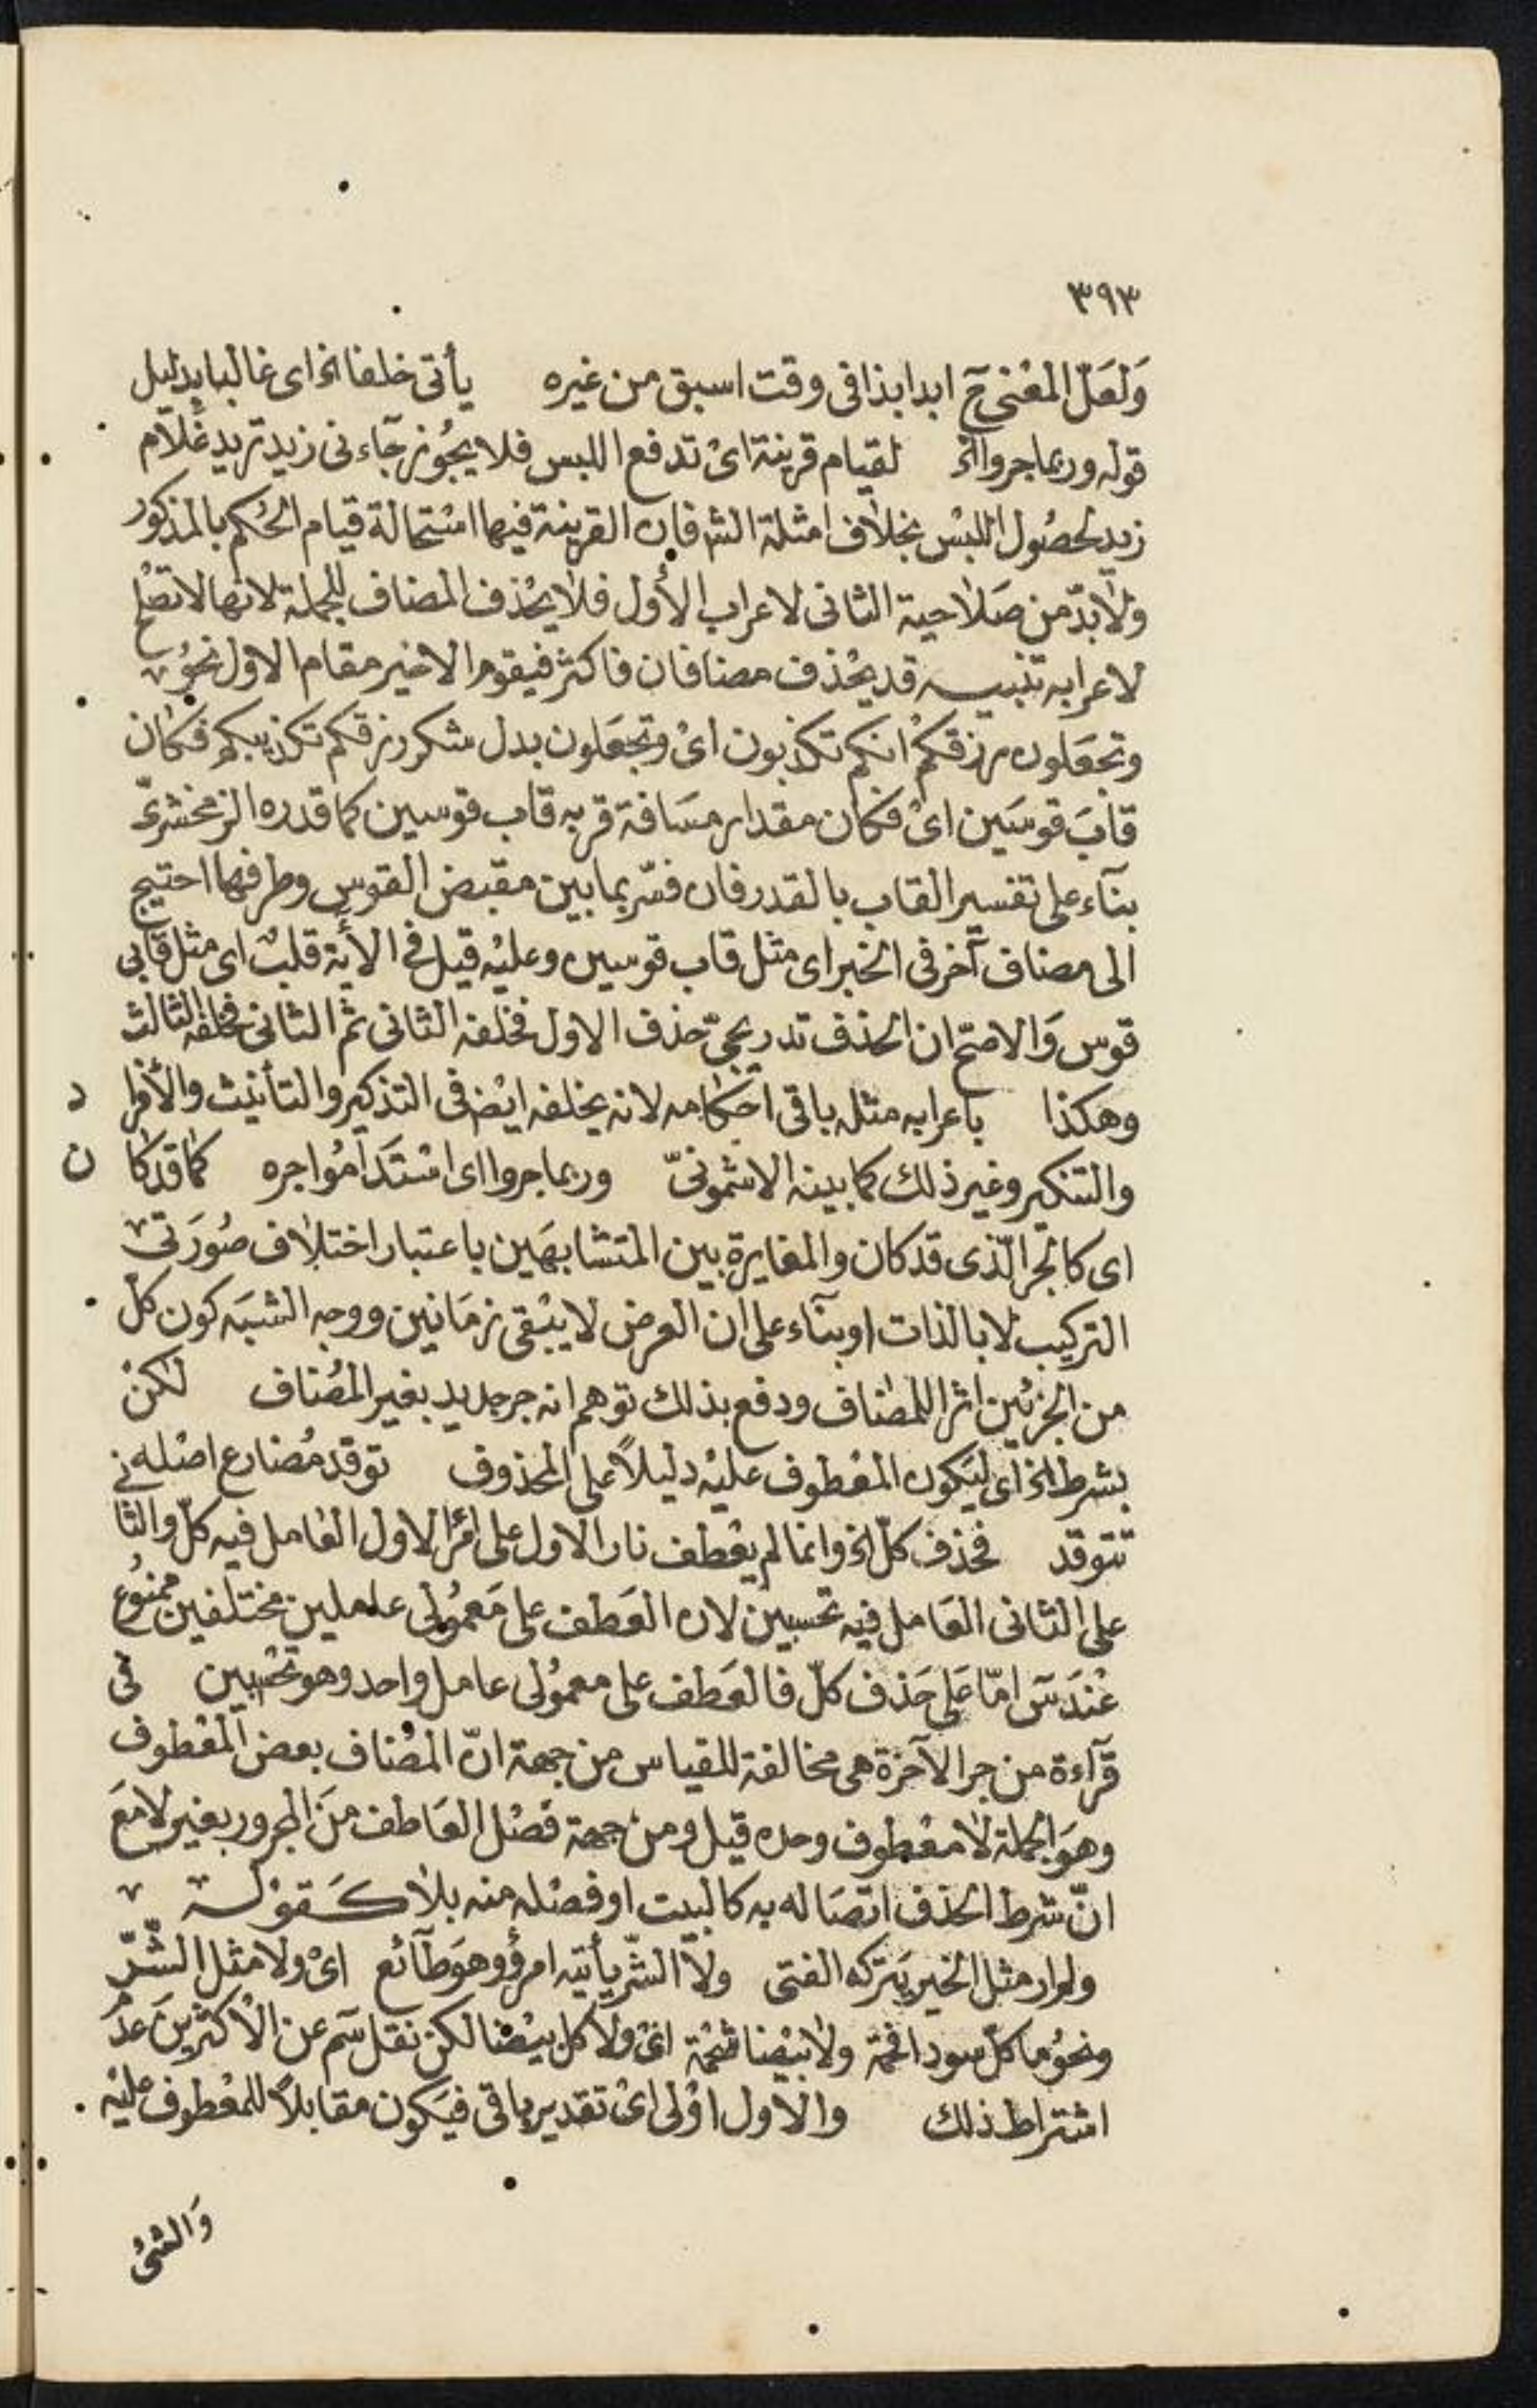 ٣٩٣
وَلَعَلّ المعْنى حٓ ابدا بذا فى وقت اسبق من غيره يأتى خلفا الخ اى غالبا بدليل
قوله وربما جروا الخ لقيام قرينة اىْ تدفع اللبس فلا يجُوز جآء نى زيد تريد غلام
زيد لحصُول اللبْس بخلاف امثلة الش فان القرينة فيها استحالة قيام الحُكم بالمذكور
ولابدّ من صَلاحية الثانى لاعراب الأول فلا يحْذف المضاف للجملة لانها لا تصْلح
لاعرابه تنبيه قد يحْذف مضافان فاكثر فيقوم الاخير مقام الاول نحوُ
وتجعَلون رزقكمْ انكم تكذبون اىْ وتجعَلون بدل شكر رزقكم تكذيبكم فكان
قابَ قوسَين اىْ فكان مقدار مسَافة قربه قاب قوسين كما قدره الزمخشرىّ
بنآء على تفسير القاب بالقدر فان فسّر بما بين مقبض القوس وطرفها احتيج
الى مضاف آخر فى الخبر اى مثل قاب قوسين وعليْه قيل فى الأية قلبٌ اى مثل قابى
قوس وَالاصَحّ ان الحذف تدريجىّ حذف الاول فخلفه الثانى ثم الثانى فخلفه الثالث
وهكذا باعرابه مثله باقى احكامه لانه يخلفه ايْض فى التذكير والتأنيث والأفرا د
والتنكير وغير ذلك كما بينه الاشمونىّ وربما جروا اى اسْتدَامُوا جره كما قد كا ن
اى كالجر الّذى قد كان والمغايرة بين المتشابهَين باعتبار اختلاف صُورَتى
التركيب لا بالذات او بنآء على ان العرض لا يبْقى زمَانين ووجه الشبَه كون كلّ
من الجرّيْن اثرا للمضاف ودفع بذلك توهم انه جر جديد بغير المُضاف لكنْ
بشرط الخ اى ليَكون المعْطوف عليْه دليلاً على المحذوف توقد مُضارع اصْله
تتوقد فحذف كلّ الخ وانما لم يعْطف نار الاول على امرَا الاول العَامل فيه كلّ والثا نى
على الثانى العَامل فيه تحسبينَ لان العَطف على مَعمُولى عاملين مختلفين ممنُوع
عنْدَ سٓ امّا عَلى حَذف كلّ فالعَطف على معمُولى عامل واحد وهو تحْسبين فى
قرآءة من جر الآخرة هى مخالفة للقياس من جهة انّ المُضاف بعض المعْطوف
وهوَ الجملة لا معْطوف وحده قيل ومن جهة فصْل العَاطف منَ المجرور بغير لا معَ
انّ شرط الحذف اتصَاله به كالبيت او فصْله منه بلا كَقوْله
ولم ار مثل الخير يَتركه الفتى ولا الشّر يأتيه امرؤُ وهوَ طآئع اىْ ولا مثل الشّرّ
ونحوُ ما كلّ سودا فحْمة ولا بيْضا شحْمة اىْ ولا كل بيْضا لكن نقل سَم عن الاكثرينَ عدَ م
اشتراط ذلك والاول اوْلى اىْ تقدير باقى فيَكون مقابلاً للمعْطوف عليْه
وَالشئُ